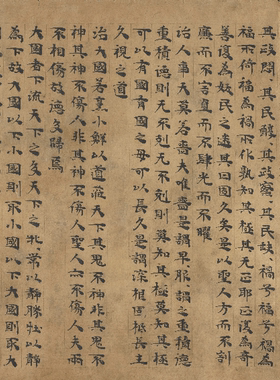 其政其民醇其政察其民福兮福為
福不何福為禍其極其无正耶正復為奇
善復為民之迷其曰固久矣是以聖人方而不割
廉而不直而不肆光而不曜
治人事天莫若嗇夫唯嗇是謂早服謂之重積德
重積德則无不剋无不剋則莫知其極莫知其極
可以有國有國之母可以長久是謂深根固柢長生
久視之道
治大國若烹小鮮以道莅天下其鬼不神非其鬼不
神其神不傷人非其神不傷人聖人亦不傷人夫兩
不相傷故德交歸焉
大國者下流天下之交天下之牝常以靜勝牡以靜
為下故大國以下小國則取小國小以下大國則取大